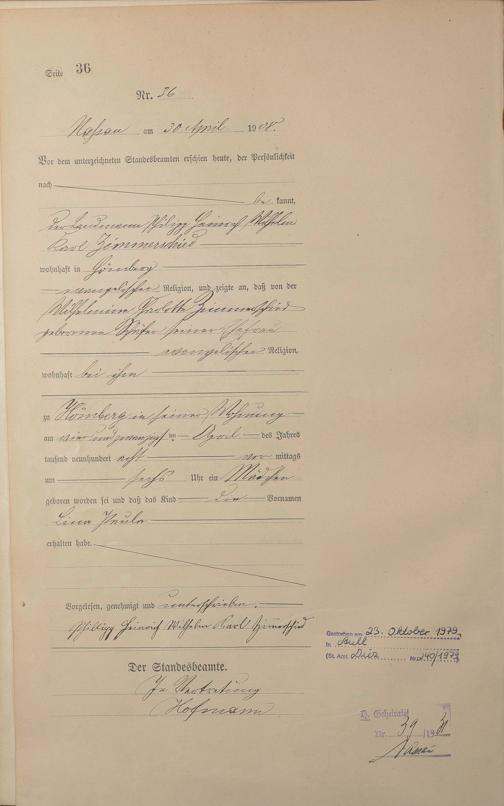 Seite 36
Nr. 36
Nassau am 30 April 1908.
Vor dem unterzeichneten Standesbeamten erschien heute, der Persönlichkeit
nach
be kannt,
der Landmann Philipp Heinrich Wilhelm
Karl Zimmerschied
wohnhaft in Hömberg
evangelischer Religion, und zeigte an, daß von der
Wilhelmine Charlotte Zimmerschied
geborenen Schäfer seiner Ehefrau
evangelischer Religion,
wohnhaft bei ihm
zu Hömberg in seiner Wohnung
am vier und zwanzigsten April des Jahres
tausend neunhundert acht vor mittags
um sechs Uhr ein Mädchen
geboren worden sei und daß das Kind den Vornamen
Lina Paula
erhalten habe.
Vorgelesen, genehmigt und unterschrieben.
Philipp Heinrich Wilhelm Karl Zimmerschied
Der Standesbeamte.
In Vertretung
Hofmann
Gestorben am 23. Oktober 1979
in
(St. Amt Diez Nr. 140/1979
Nr. 39/1931